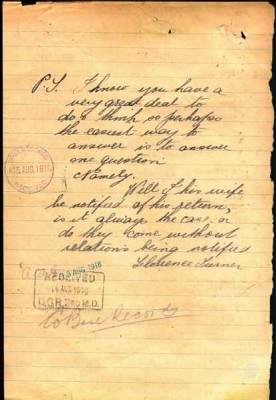 P.S. I know you have a
very great deal to
do & think so perhaps
the easiest way to
answer is to answer
one question
Namely.
Will I his wife
be notified of his return,
is it always the case, or
do they come without
relations being notified
Florence Turner
AUG 1918
AUG 1918
RECEIVED
AUG 1918
M.D.
Base Records